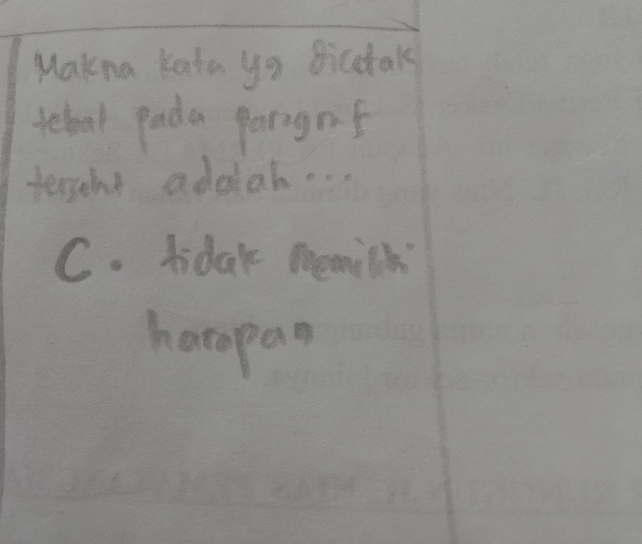 Makna kata yg dicetak
tebal pada paragraf
tersebut adalah...
C. tidak memiliki
harapan